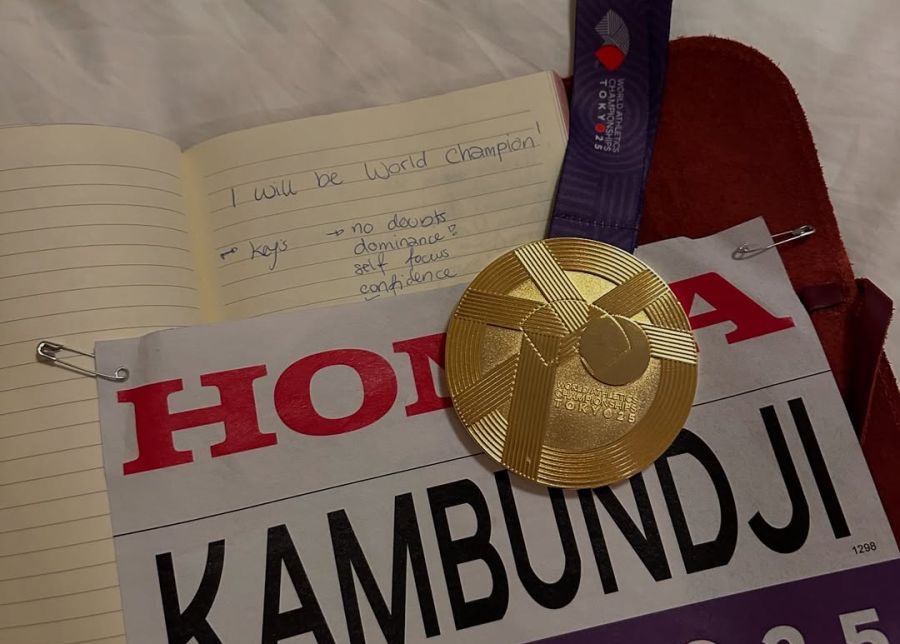 I will be World Champion!
→ Key's → no doubts
dominance!
self focus
confidence
WORLD ATHLETICS
CHAMPIONSHIPS
TOKYO25
HONDA
WORLD ATHLETICS
CHAMPIONSHIPS
TOKYO25
KAMBUNDJI
1298
25